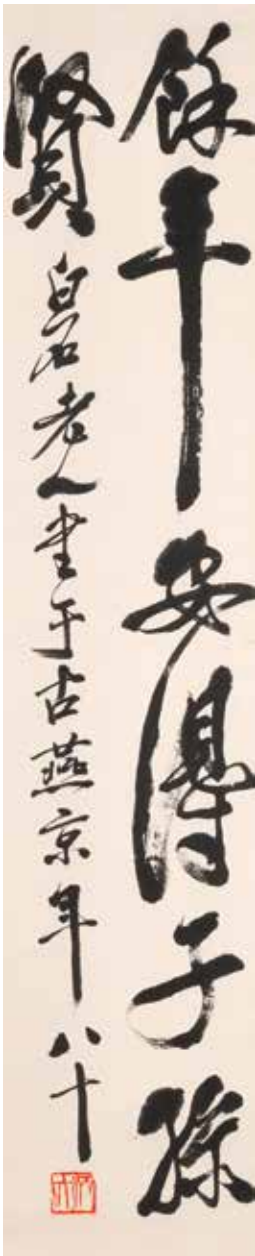 餘年安得子孫
賢
白石老人書于古燕京年八十